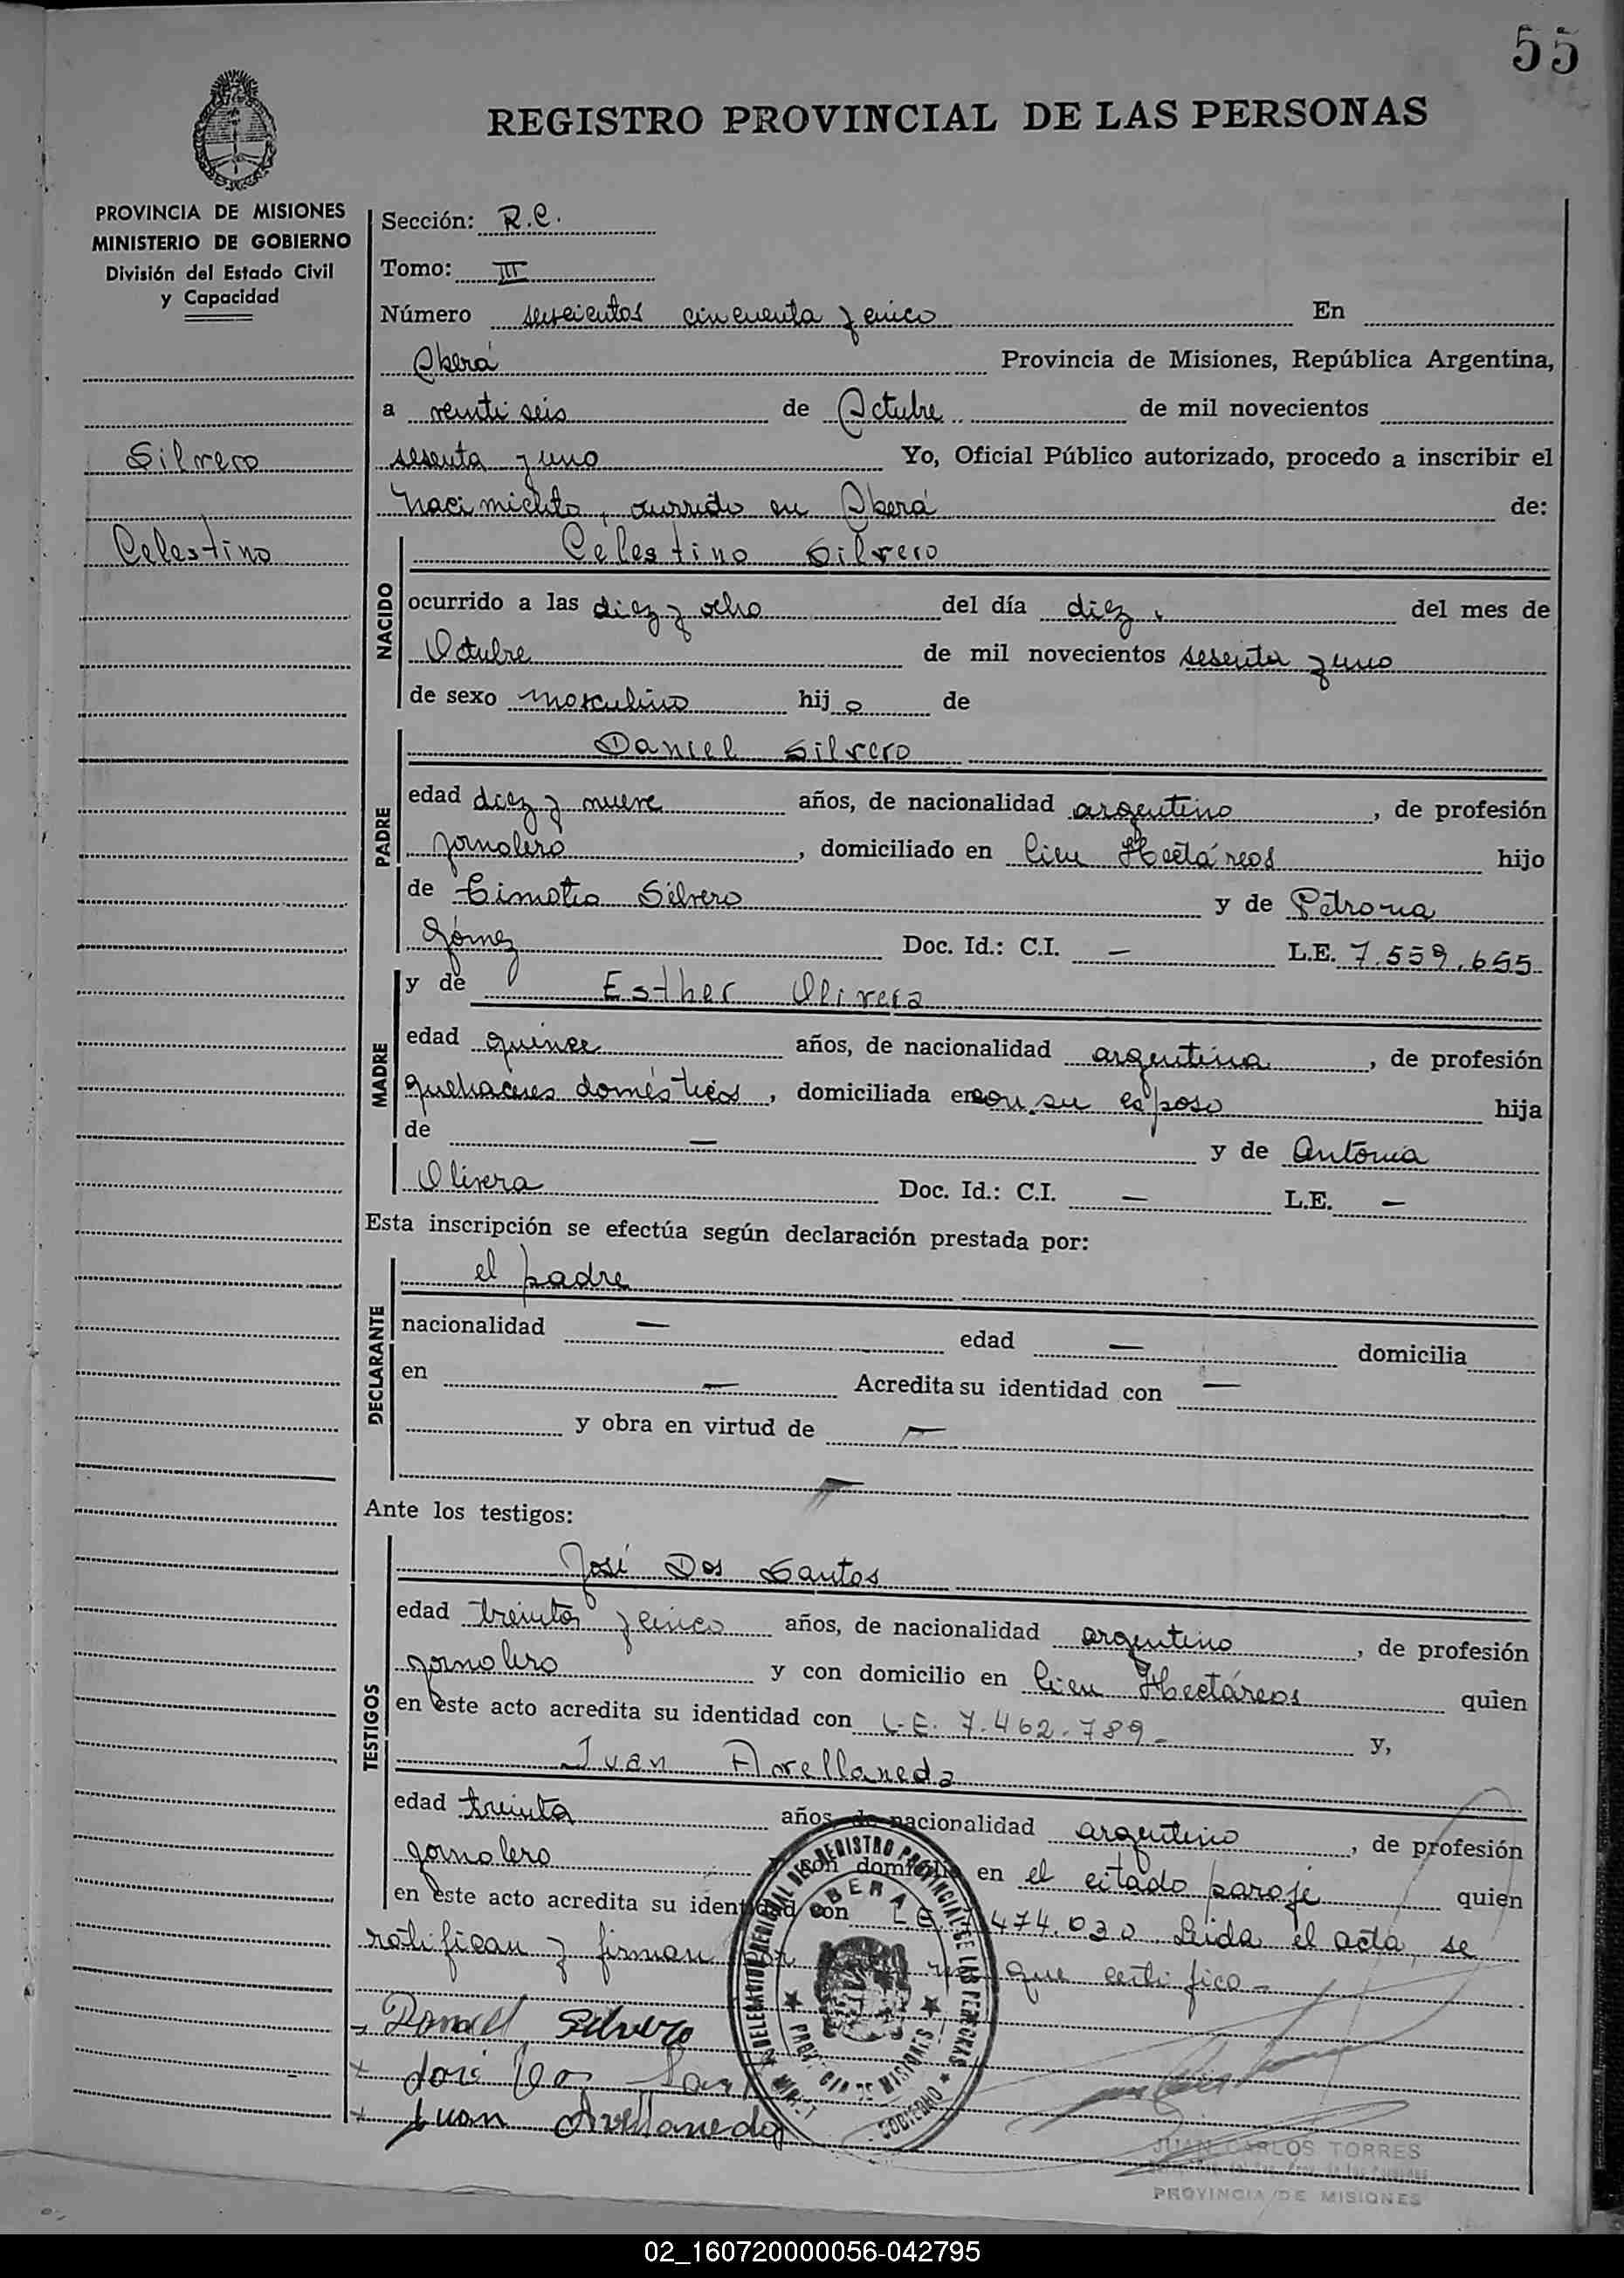 55
REGISTRO PROVINCIAL DE LAS PERSONAS
PROVINCIA DE MISIONES
MINISTERIO DE GOBIERNO
División del Estado Civil
y Capacidad
Silvero
Celestino
Sección: R.C.
Tomo: III
Número seiscientos cincuenta y cinco En
Oberá Provincia de Misiones, República Argentina,
a veinti seis de Octubre de mil novecientos
sesenta y uno Yo, Oficial Público autorizado, procedo a inscribir el
nacimiento, ocurrido en Oberá de:
NACIDO
Celestino Silvero
ocurrido a las diez y ocho del día diez, del mes de
Octubre de mil novecientos sesenta y uno
de sexo masculino hijo de
PADRE
Daniel Silvero
edad diez y nueve años, de nacionalidad argentino, de profesión
jornalero, domiciliado en Cien Hectáreas hijo
de Timoteo Silvero y de Petrona
Gómez Doc. Id.: C.I. — L.E. 7.559.655
MADRE
y de Esther Olivera
edad quince años, de nacionalidad argentina, de profesión
quehaceres domésticos, domiciliada en con su esposo hija
de — y de Antonia
Olivera Doc. Id.: C.I. — L.E. —
Esta inscripción se efectúa según declaración prestada por:
DECLARANTE
el padre
nacionalidad — edad — domicilia
en — Acredita su identidad con —
y obra en virtud de —
Ante los testigos:
TESTIGOS
José Dos Santos
edad treinta y cinco años, de nacionalidad argentino, de profesión
jornalero y con domicilio en Cien Hectáreas quien
en este acto acredita su identidad con L.E. 7.462.789- y,
Juan Avellaneda
edad treinta años, de nacionalidad argentino, de profesión
jornalero y con domicilio en el citado paraje quien
en este acto acredita su identidad con L.E. 474.030. Leida el acta, se
ratifican y firman por que certifico-
Daniel Silvero
José Dos Sant
Juan Avellaneda
DELEGACION REGIONAL DEL REGISTRO PROVINCIAL DE LAS PERSONAS
OBERA
PROVINCIA DE MISIONES
GOBIERNO
JUAN CARLOS TORRES
PROVINCIA DE MISIONES
02_160720000056-042795